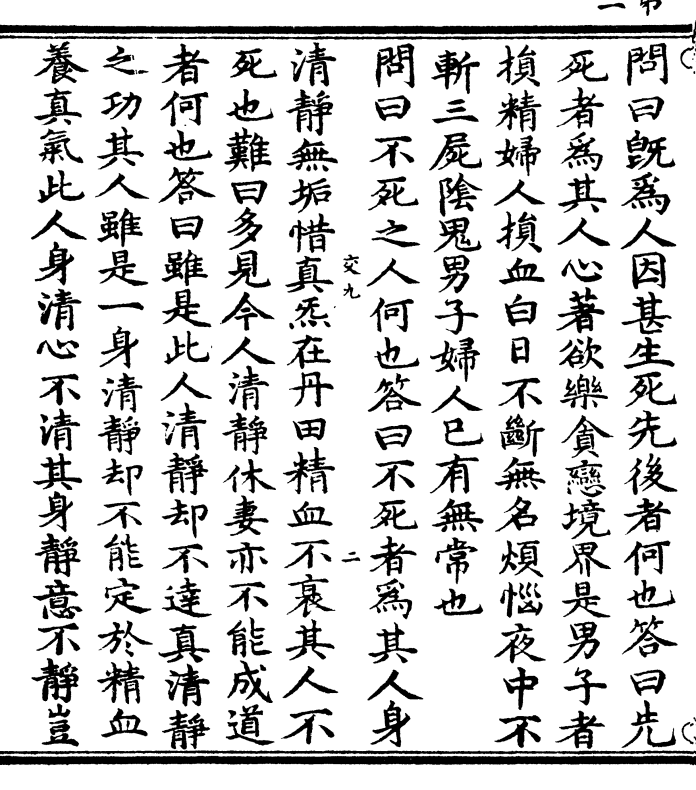 問曰旣爲人因甚生死先後者何也答曰先
死者爲其人心著欲樂貪戀境界是男子者
損精婦人損血白日不斷無名煩惱夜中不
斬三屍陰鬼男子婦人巳有無常也
問曰不死之人何也答曰不死者爲其人身
交九
二
清靜無垢惜真炁在丹田精血不衰其人不
死也難曰多見今人清靜休妻亦不能成道
者何也答曰雖是此人清靜却不達真清靜
之功其人雖是一身清靜却不能定於精血
養真氣此人身清心不清其身靜意不靜豈